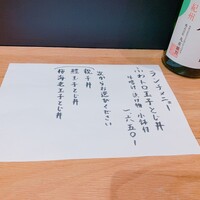 ランチメニュー
ふわトロ玉子とじ丼
汁物 漬け物 小鉢付
一六五〇
次からお選びください
親子丼
鰻玉子とじ丼
桜海老玉子とじ丼